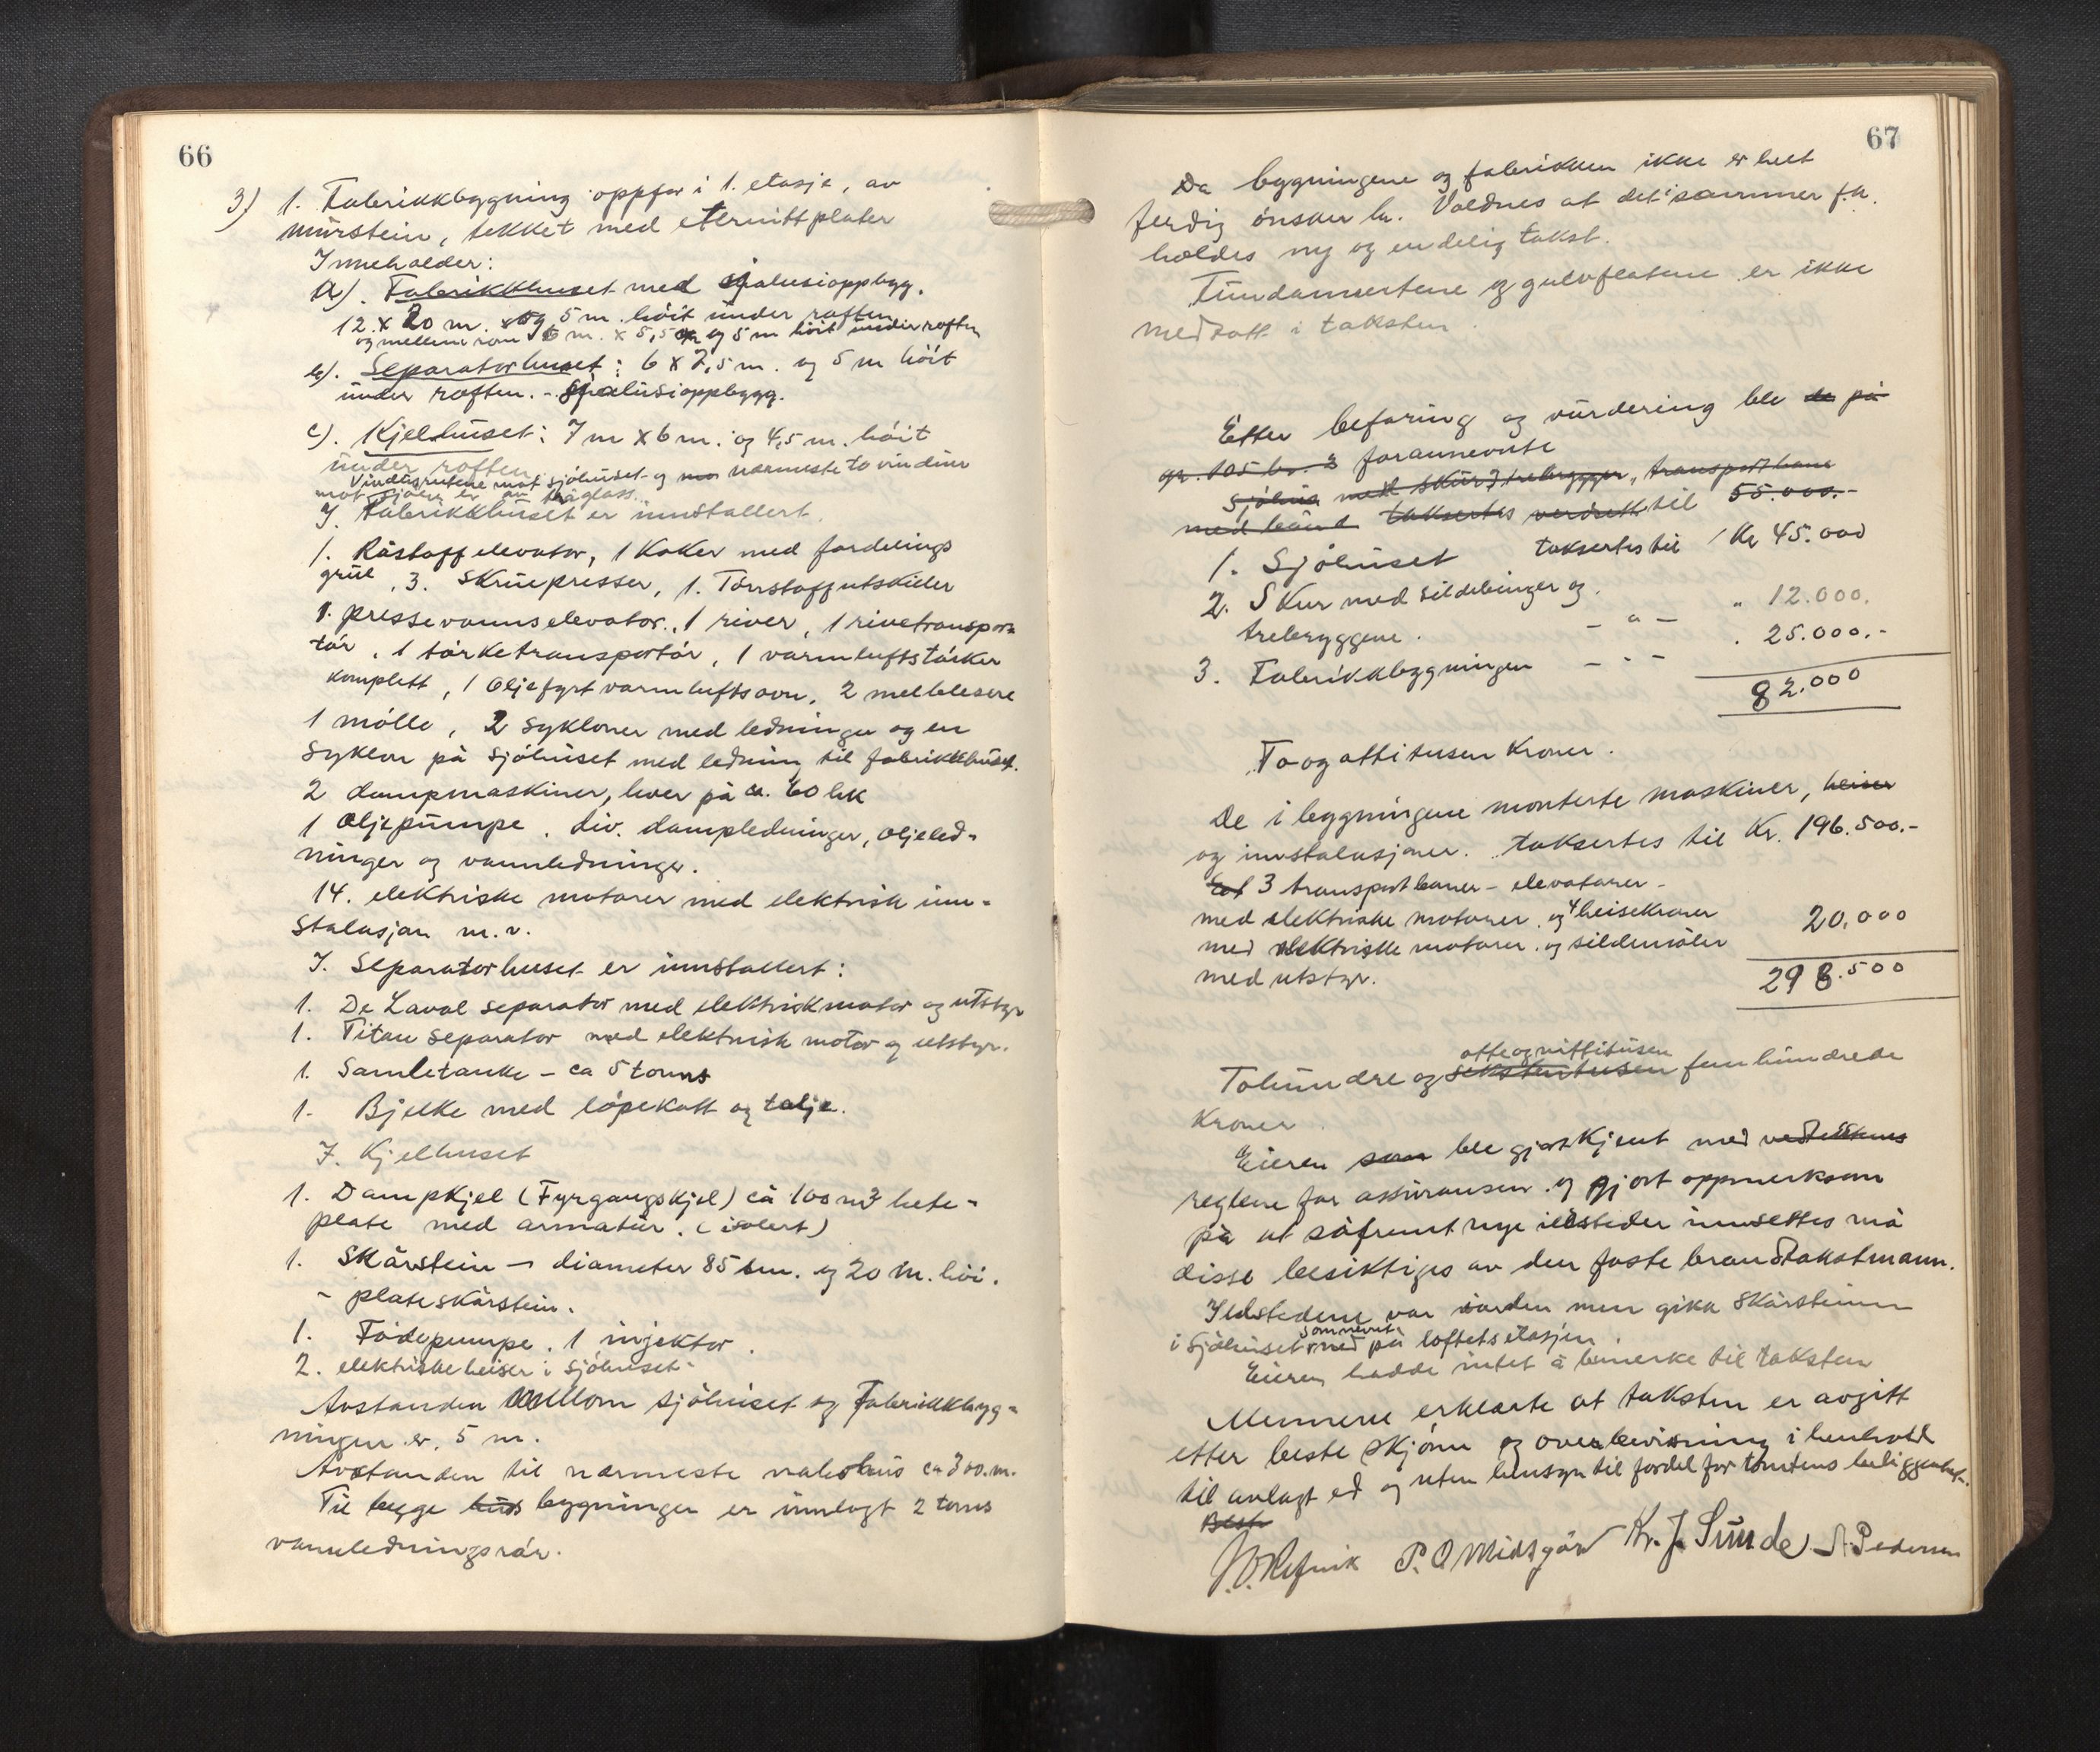 66
3) 1. Fabrikkbygning oppfør i 1. etasje, av
mūrstein, tekket med eternittplater
Inneholder:
a). Fabrikkhuset med sjalusioppbygg.
12 x 20 m. og 5 m. höit ūnder raften
og mellem rom 6 m. x 5,5 og 5 m höit ūnder raften
b). Separatorhuset: 6 x 7,5 m. og 5 m höit
ūnder raften. - sjalūsioppbygg.
c). Kjelhūset: 7 m x 6 m. og 4,5 m. höit
ūnder raften
Vindūsrutene mot sjöhūset og nærmeste to vinduer
mot sjöen er av tråglass.
I. Fabrikkhūset er innstallert.
1. Råstoffelevator, 1 Koker med fordelings
grūe, 3. Skrūepresser, 1. Tönstoffutskiller
1. pressevannselevator, 1 river, 1 rivetranspor-
tör, 1 törketransportör, 1 varmluftstörker
komplett, 1 oljefyrt varmluftsovn, 2 melblesere
1 mölle, 2 sykloner med ledninger og en
syklon på sjöhūset med ledning til fabrikkhūset.
2 dampmaskiner, hver på ca. 60 hk
1 oljepūmpe. div. dampledninger, oljeled-
ninger og vannledninger.
14. elektriske motorer med elektrisk inn-
stalasjon m.v.
I. Separatorhuset er innstallert:
1. De Laval separator med elektrisk motor og utstyr
1. Titan separator med elektrisk motor og utstyr.
1. Samletanke - ca 5 tonns
1. Bjelke med löpekatt og talje.
I. Kjelhuset
1. Dampkjel (Fyrgangskjel) ca 100 m3 hete-
plate med armatūr. (isolert)
1. Skårstein - diameter 85 sm. og 20 m. höi.
- plateskårstein.
1. Födepumpe. 1 injektor.
2. elektriske heiser i sjöhuset.
Avstanden mellom sjöhūset og Fabrikkbyg-
ningen er. 5 m.
Avstanden til nærmeste nabohūs ca 300. m.
Til begge hūs bygninger er innlagt 2 toms
vannledningsrör.
67
Da bygningene og fabrikken ikke er helt
ferdig önsker hr. Voldnes at det i sommer f.h.
holdes ny og endelig takst.
Fūndamentene og gulvflatene er ikke
medtatt i taksten.
Etter befaring og vūrdering ble de på
gr. 105 br. 3 forannevnte
sjöhūs med skūr, trebrygger, transportbane
med bånd taksertes verdsett til 55.000.-
1. Sjöhūset taksertes til Kr 45.000
2. Skur med sildebinger og
trebryggene. - " - " 12.000.
3. Fabrikkbygningen - " - . 25.000.-
82.000
To og åtti tusen Kroner.
De i bygningene monterte maskiner, heiser
og innstalasjoner. taksertes til Kr. 196.500.-
3 transportbaner - elevatorer -
med elektriske motorer. og 4 heisekraner
med elektriske motorer og sildemåler 20,000
med utstyr.
298.500
åtteognittitūsen
Tohūndre og sekstentusen fem hūndrede
Kroner.
Eieren som ble gjort Kjent med vedtektens
reglene for assūransen. og gjort oppmerksom
på at såfremt nye ildsteder innsettes må
disse besiktiges av den faste brandtakstmann.
Ildstedene var i orden men gikk skårsteinen
i sjöhūset sammen med på loftetsetasjen.
Eieren hadde intet å bemerke til taksten
Mennene erklærte at taksten er avgitt
etter beste skjönn og overbevisning i henhold
til avlagt ed og uten hensyn til fordel for tomtens beliggenhet.
P. O Midtgård Kr. J. Sūnde A. Pedersen